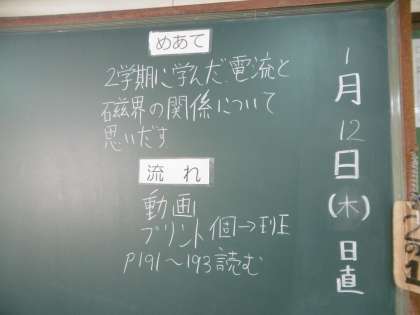 めあて
2学期に学んだ電流と
磁界の関係について
思いだす
流れ
動画
プリント個→班
P191〜193読む
1月12日(木)日直
2の1